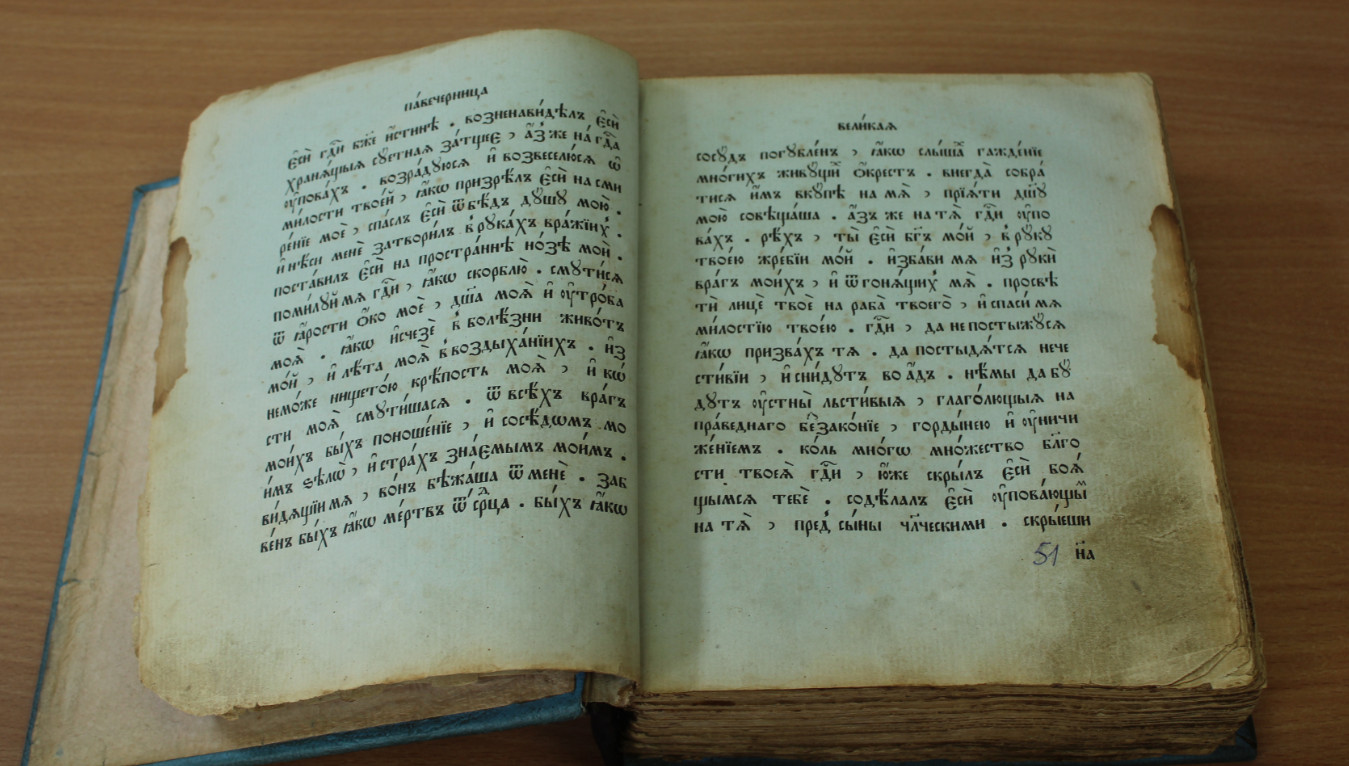 па́вечерница
є҆сѝ гд҇и бж҃е и҆́стинѣ . возненави́дѣлъ є҆сѝ
хранѧ́щыѧ сꙋ́етнаѧ зат́щее , а҆́з же на́ гд҇а
ᲂу҆пова́хъ . возра́дꙋюсѧ и҆ возвеселю́сѧ ѡ҆
милости твое́й , ꙗ҆́кѡ призрѣ́лъ є҆сѝ на сми
ре́нїе моѐ , спа́слъ є҆сѝ ѿ бѣ́дъ дꙋ́шꙋ мою̀ .
и҆ нѣ́си менѐ затвори́лъ в̾ рꙋка́хъ вра́жїихъ .
поста́вилъ є҆сѝ на простра́ннѣ но́зѣ моѝ .
поми́лꙋй мѧ гд҇и , ꙗ҆́кѡ скорблю̀ . смꙋти́сѧ
ѿ ꙗ҆́рости ѻ҆́ко моѐ , дш҃а моѧ̀ и҆ ᲂу҆тро́ба
моѧ̀ . ꙗ҆́кѡ и҆счезѐ в̾ болѣ́зни живо́тъ
мо́й , и҆ лѣ́та моѧ̀ в̾ воздыха́нїихъ . и҆з
немо́же нището́ю крѣ́пость моѧ̀ , и҆ кѡ́
сти моѧ̀ смꙋти́шасѧ . ѿ всѣ́хъ вра́гъ
мои́хъ бы́хъ поноше́нїе , и҆ сосѣ́дѡмъ мо
и́мъ ѕѣлѡ̀ , и҆ стра́хъ зна́емымъ мои́мъ .
ви́дѧщїи мѧ , во́нъ бѣжа́ша ѿ менѐ . заб
ве́нъ бы́хъ ꙗ҆́кѡ ме́ртвъ ѿ ср҃ца . бы́хъ ꙗ҆́кѡ
вели́каѧ
сосꙋ́дъ погꙋбле́нъ , ꙗ҆́кѡ слы́шахъ гажде́нїе
мно́гихъ живꙋ́щихъ ѻ҆́крестъ . внегда̀ собра́
тисѧ и҆̀мъ вкꙋ́пѣ на мѧ̀ , прїѧ́ти дш҃ꙋ
мою̀ совѣща́ша . а҆́зъ же на тѧ̀ гд҇и ᲂу҆по
ва́хъ . рѣ́хъ , ты̀ є҆сѝ бг҃ъ мо́й , в̾ рꙋкꙋ̀
твое́ю жре́бїи мо́й . и҆зба́ви мѧ и҆з̾ рꙋкѝ
вра́гъ мои́хъ , и҆ ѿ гонѧ́щихъ мѧ̀ . просвѣ
тѝ лицѐ твоѐ на раба̀ твоего̀ , и҆ спаси́ мѧ
ми́лостїю твое́ю . гд҇и , да не постыжꙋ́сѧ
ꙗ҆́кѡ призва́хъ тѧ . да постыдѧ́тсѧ нече
сти́вїи , и҆ сни́дꙋтъ во а҆́дъ . нѣ́мы да бꙋ́
дꙋтъ ᲂу҆стны̀ льсти́выѧ , глаго́лющыѧ на
пра́веднаго беззако́нїе , горды́нею и҆ ᲂу҆ничи
же́нїемъ . ко́ль мно́гѡ мно́жество бл҃го
сти твоеѧ̀ гд҇и , ю҆́же скры́лъ є҆сѝ боѧ́
щымсѧ тебѐ . содѣ́лалъ є҆сѝ ᲂу҆пова́ющымъ
на тѧ̀ , пред̾ сы́ны чл҃ческими . скры́еши
51 и҆̀а